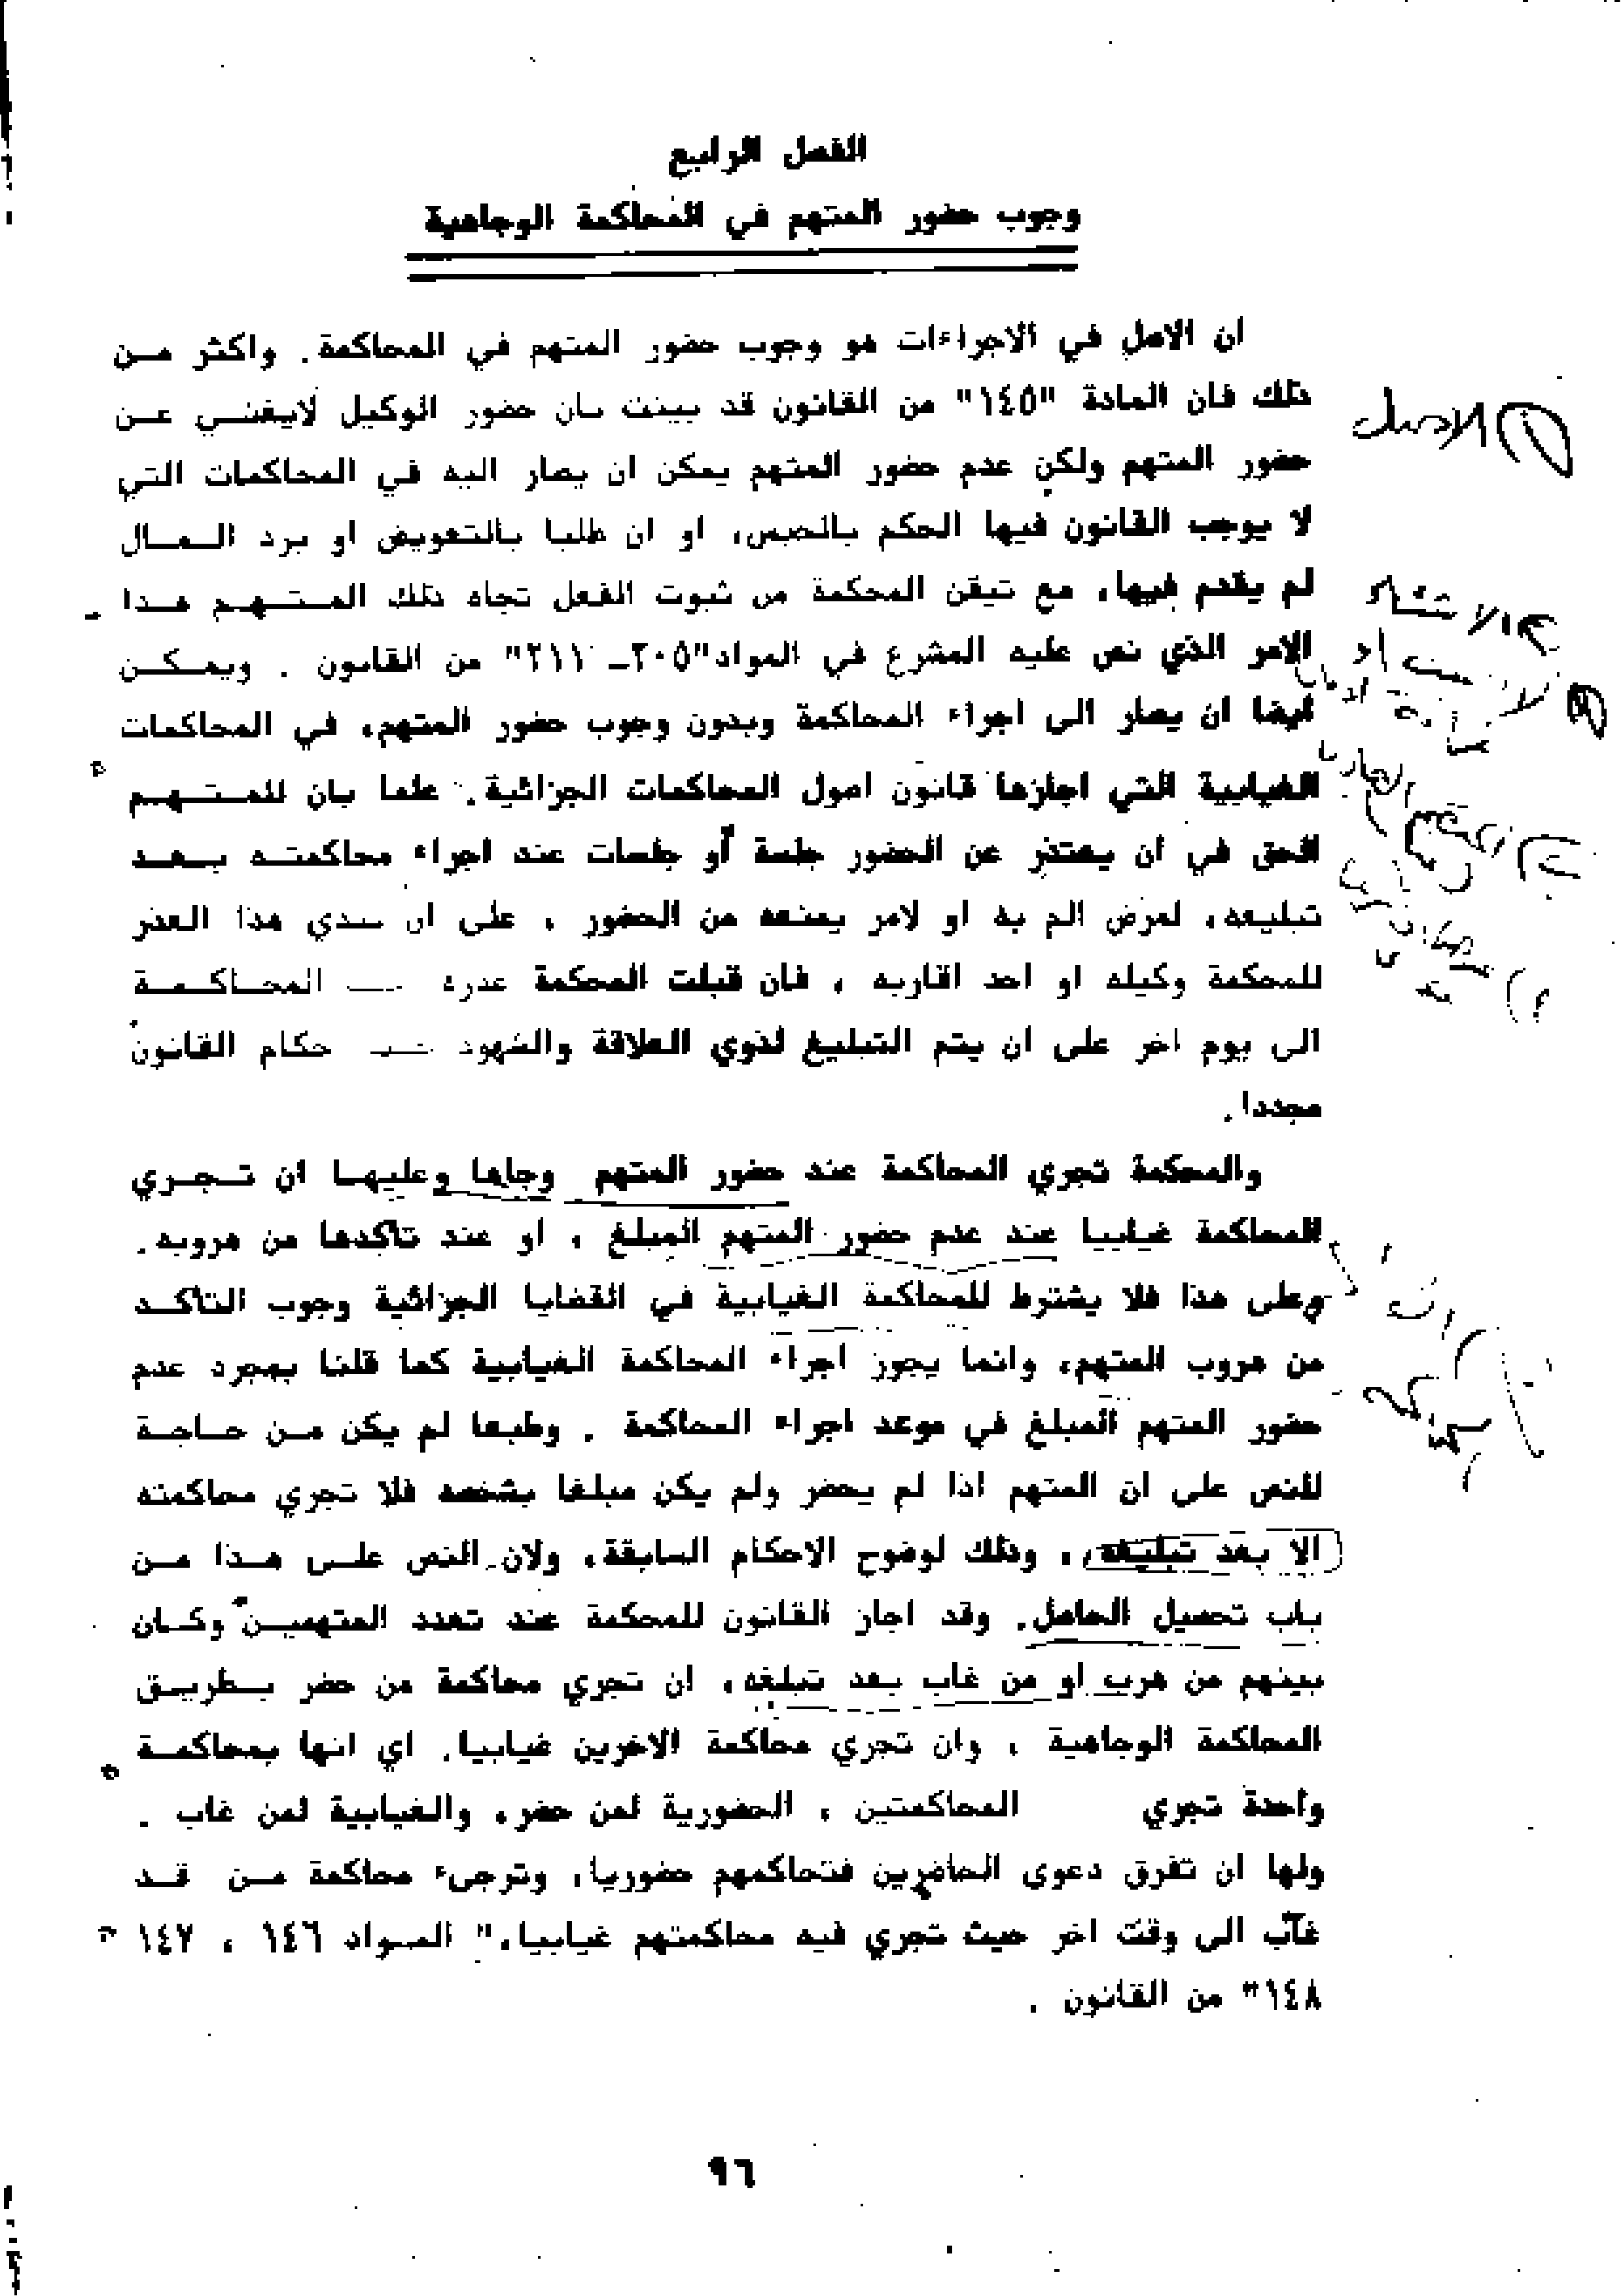 الفصل الرابع
وجوب حضور المتهم في المحاكمة الوجاهية
ان الاصل في الاجراءات هو وجوب حضور المتهم في المحاكمة. واكثر مــن
ذلك فان المادة "١٤٥" من القانون قد بينت بان حضور الوكيل لايغنــي عــن
حضور المتهم ولكن عدم حضور المتهم يمكن ان يصار اليه في المحاكمات التي
لا يوجب القانون فيها الحكم بالحبس، او ان طلبا بالتعويض او برد الــمــال
لم يقدم فيها، مع تيقن المحكمة من ثبوت الفعل تجاه ذلك المــتــهــم هــذا
الامر الذي نص عليه المشرع في المواد"٢٠٥ــ ٢١١" من القانون . ويمــكــن
ايضا ان يصار الى اجراء المحاكمة وبدون وجوب حضور المتهم، في المحاكمات
الغيابية التي اجازها قانون اصول المحاكمات الجزائية. علما بان للمــتــهــم
الحق في ان يعتذر عن الحضور جلسة أو جلسات عند اجراء محاكمتــه بــعــد
تبليغه، لمرض الم به او لامر يمنعه من الحضور ، على ان يبدي هذا العذر
للمحكمة وكيله او احد اقاربه ، فان قبلت المحكمة عذره المحــاكــمــة
الى يوم اخر على ان يتم التبليغ لذوي العلاقة والشهود حكام القانون
مجددا.
والمحكمة تجري المحاكمة عند حضور المتهم وجاها وعليهــا ان تــجــري
المحاكمة غيابيا عند عدم حضور المتهم المبلغ ، او عند تأكدها من هروبه.
وعلى هذا فلا يشترط للمحاكمة الغيابية في القضايا الجزائية وجوب التأكــد
من هروب المتهم، وانما يجوز اجراء المحاكمة الغيابية كما قلنا بمجرد عدم
حضور المتهم المبلغ في موعد اجراء المحاكمة . وطبعا لم يكن مــن حــاجــة
للنص على ان المتهم اذا لم يحضر ولم يكن مبلغا بشخصه فلا تجري محاكمته
الا بعد تبليغه، وذلك لوضوح الاحكام السابقة، ولان النص علــى هــذا مــن
باب تحصيل الحاصل. وقد اجاز القانون للمحكمة عند تعدد المتهميــن وكــان
بينهم من هرب او من غاب بعد تبلغه، ان تجري محاكمة من حضر بــطريــق
المحاكمة الوجاهية ، وان تجري محاكمة الاخرين غيابيا. اي انها بمحاكمــة
واحدة تجري المحاكمتين ، الحضورية لمن حضر، والغيابية لمن غاب .
ولها ان تفرق دعوى الحاضرين فتحاكمهم حضوريا، وترجىء محاكمة مــن قــد
غاب الى وقت اخر حيث تجري فيه محاكمتهم غيابيا،" المــواد ١٤٦ ، ١٤٧
١٤٨" من القانون .
الاصل
٩٦